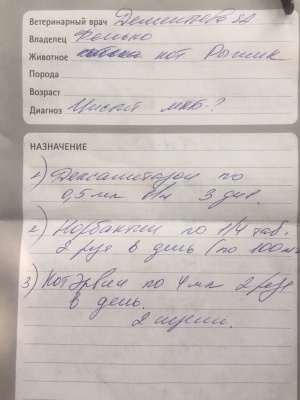 Ветеринарный врач Дементьева
Владелец Фенько
Животное кот Рыжик
Порода
Возраст
Диагноз Цистит мкб.?
НАЗНАЧЕНИЕ
1) Дексаметазон по
0,5 мл в/м 3 дня.
2) Норбактин по 1/4 таб.
2 раза в день (по 100м
3) КотЭрвин по 4 мл 2 раза
в день.
2 недели.